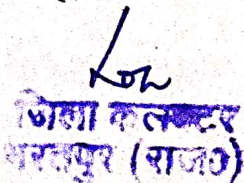 जिला कलक्टर
भरतपुर (राज०)